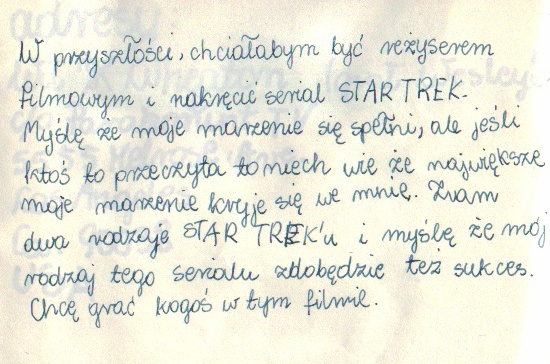 W przyszłości, chciałabym być reżyserem
filmowym i nakręcić serial STAR TREK.
Myślę że moje marzenie się spełni, ale jeśli
ktoś to przeczyta to niech wie że największe
moje marzenie kryje się we mnie. Znam
dwa rodzaje STAR TREK'u i myślę że mój
rodzaj tego serialu zdobędzie też sukces.
Chcę grać kogoś w tym filmie.